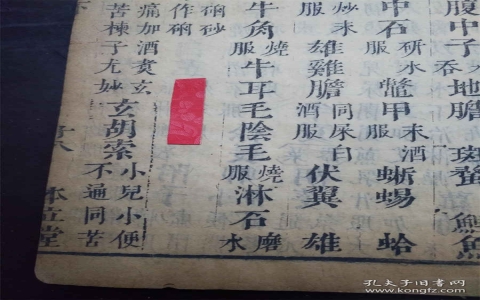 腹中子吞地膽斑蝥魚
中石研水服鼈甲末酒服蜥蜴蛤
炒末服雄雞膽同屎白酒服伏翼雄
牛角燒服牛耳毛陰毛燒服淋石磨水
硇砂
作硇
痛加酒煑玄
苦楝子尤妙玄胡索小兒小便
不通同苦
十八 本立堂
孔夫子旧书网
kongfz.com